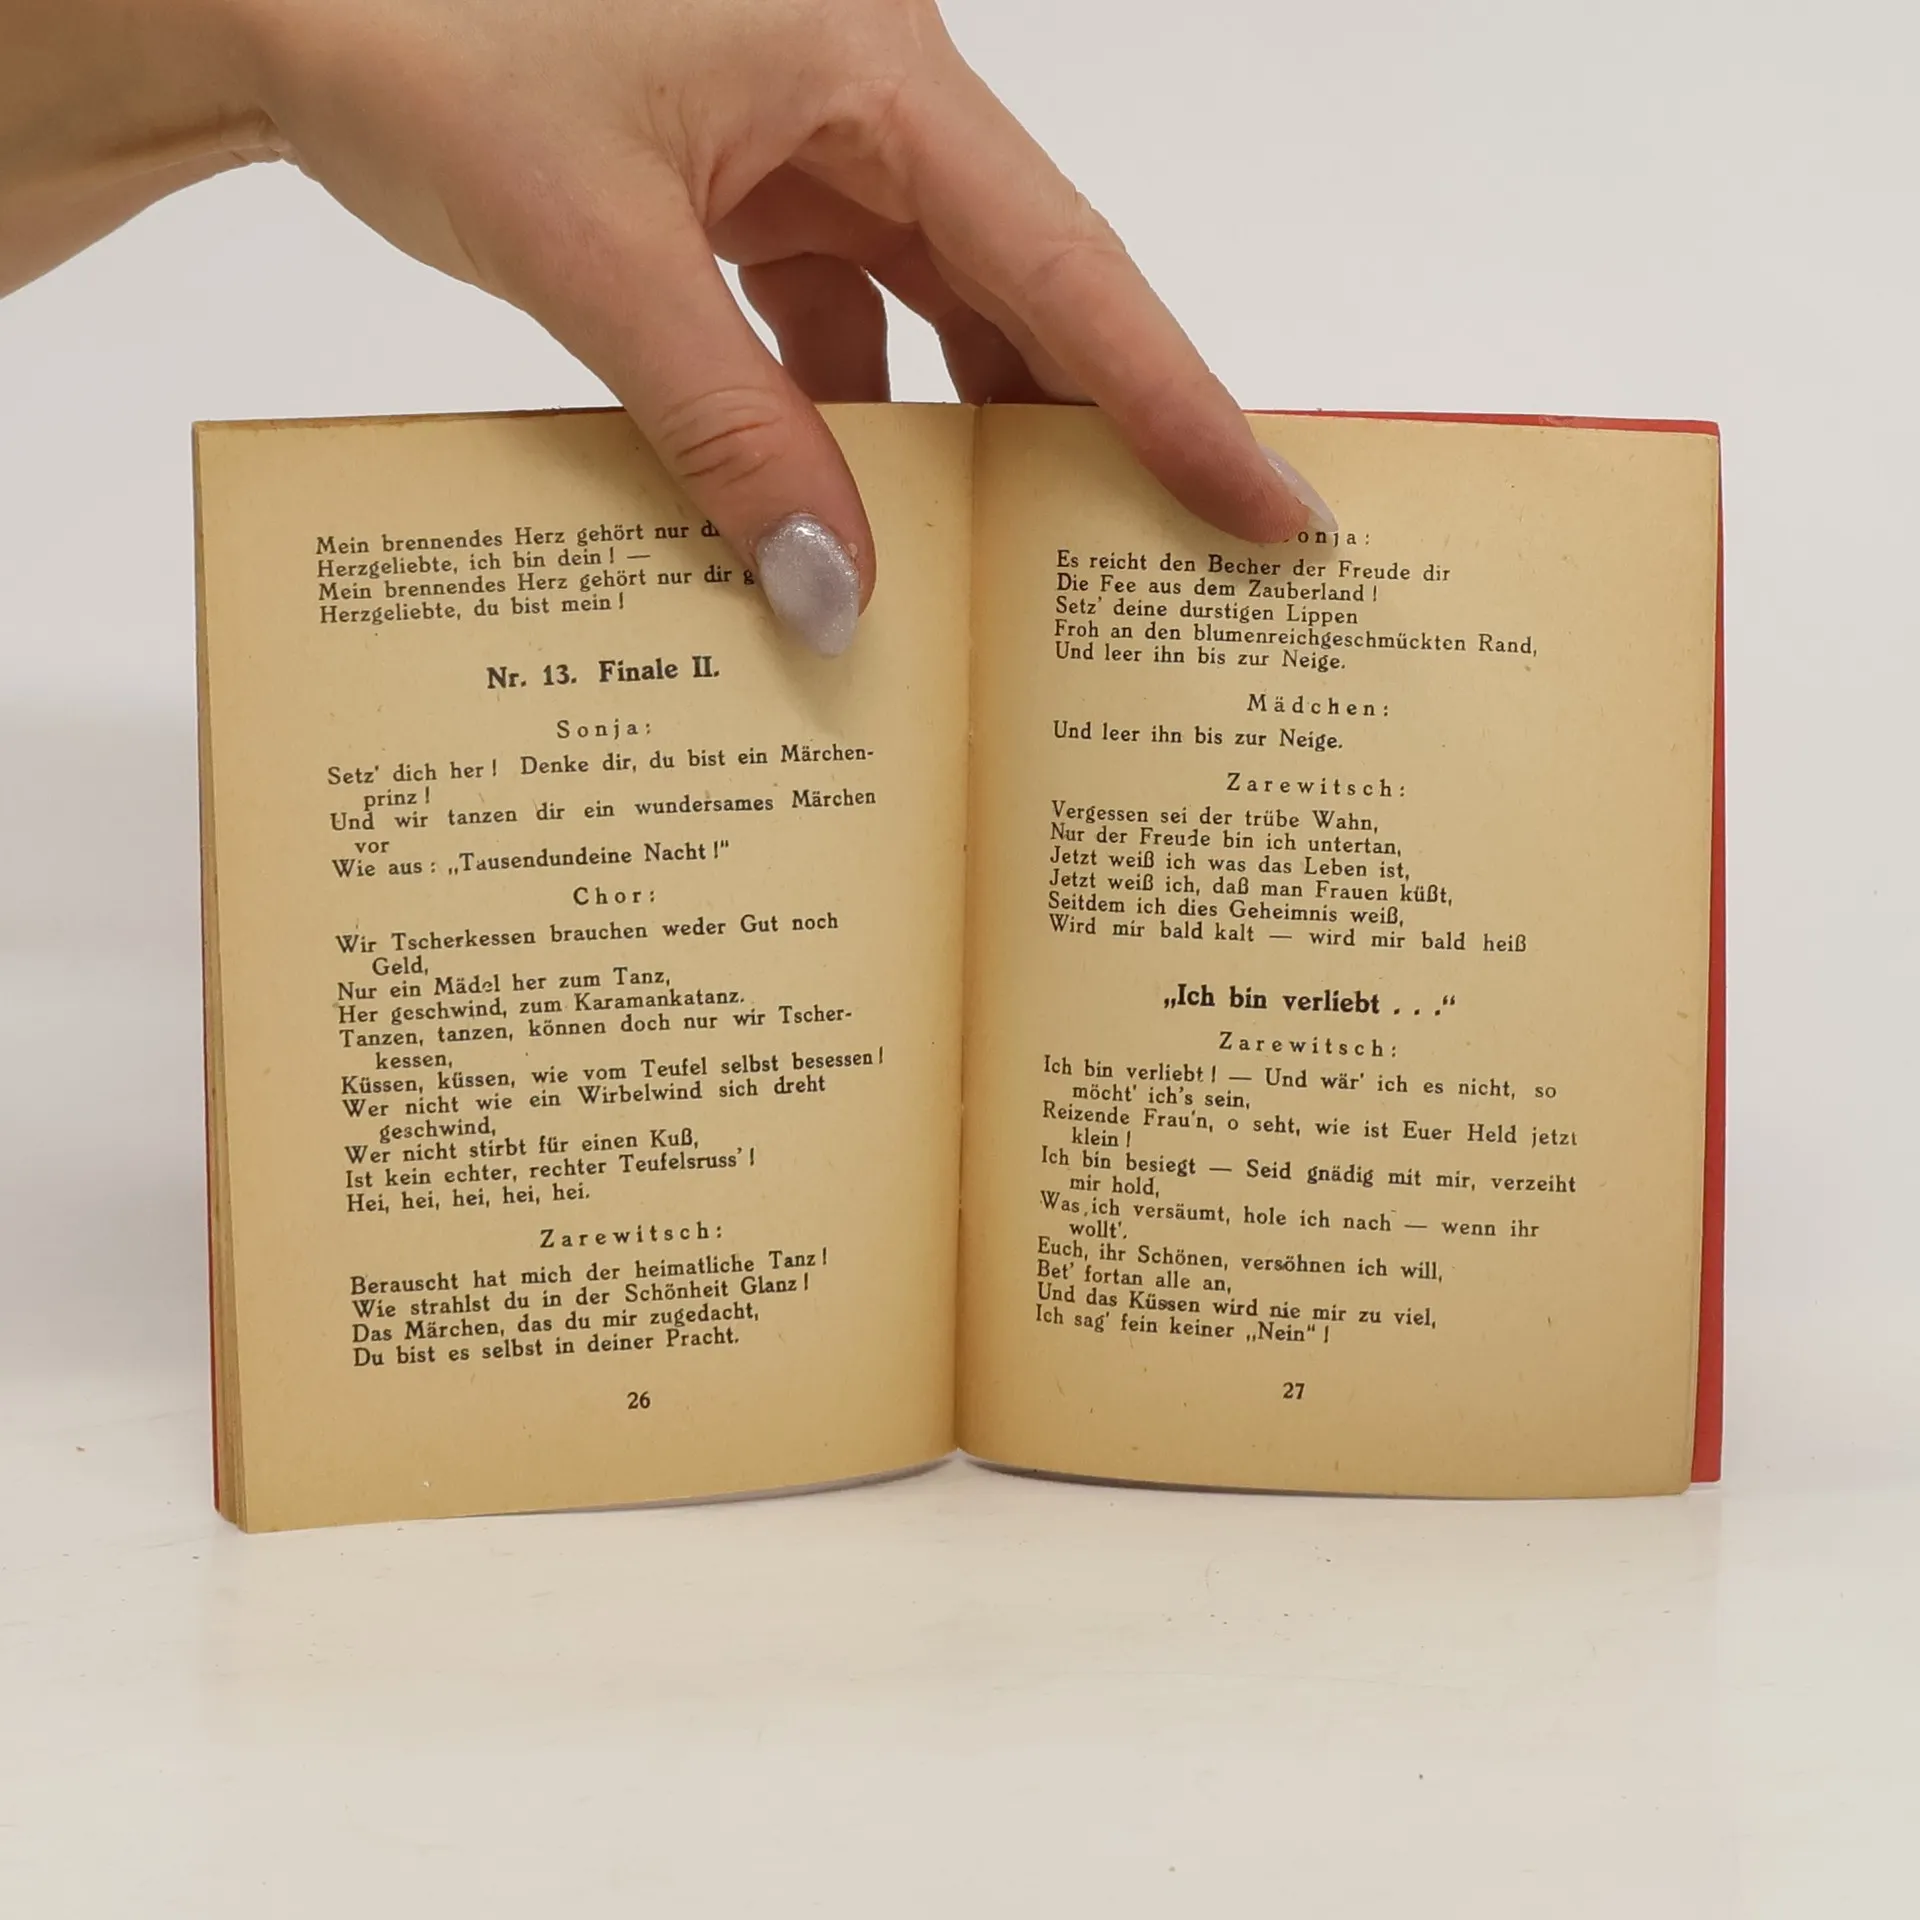 Mein brennendes Herz gehört nur
Herzgeliebte, ich bin dein! —
Mein brennendes Herz gehört nur dir
Herzgeliebte, du bist mein!
Nr. 13. Finale II.
Sonja:
Setz' dich her! Denke dir, du bist ein Märchen-
prinz!
Und wir tanzen dir ein wundersames Märchen
vor
Wie aus: „Tausendundeine Nacht!"
Chor:
Wir Tscherkessen brauchen weder Gut noch
Geld,
Nur ein Mädel her zum Tanz,
Her geschwind, zum Karamankatanz.
Tanzen, tanzen, können doch nur wir Tscher-
kessen,
Küssen, küssen, wie vom Teufel selbst besessen!
Wer nicht wie ein Wirbelwind sich dreht
geschwind,
Wer nicht stirbt für einen Kuß,
Ist kein echter, rechter Teufelsruss'!
Hei, hei, hei, hei, hei.
Zarewitsch:
Berauscht hat mich der heimatliche Tanz!
Wie strahlst du in der Schönheit Glanz!
Das Märchen, das du mir zugedacht,
Du bist es selbst in deiner Pracht.
26
onja:
Es reicht den Becher der Freude dir
Die Fee aus dem Zauberland!
Setz' deine durstigen Lippen
Froh an den blumenreichgeschmückten Rand,
Und leer ihn bis zur Neige.
Mädchen:
Und leer ihn bis zur Neige.
Zarewitsch:
Vergessen sei der trübe Wahn,
Nur der Freude bin ich untertan,
Jetzt weiß ich was das Leben ist,
Jetzt weiß ich, daß man Frauen küßt,
Seitdem ich dies Geheimnis weiß,
Wird mir bald kalt — wird mir bald heiß
„Ich bin verliebt . . ."
Zarewitsch:
Ich bin verliebt! — Und wär' ich es nicht, so
möcht' ich's sein,
Reizende Frau'n, o seht, wie ist Euer Held jetzt
klein!
Ich bin besiegt — Seid gnädig mit mir, verzeiht
mir hold,
Was ich versäumt, hole ich nach — wenn ihr
wollt'.
Euch, ihr Schönen, versöhnen ich will,
Bet' fortan alle an,
Und das Küssen wird nie mir zu viel,
Ich sag' fein keiner „Nein"!
27